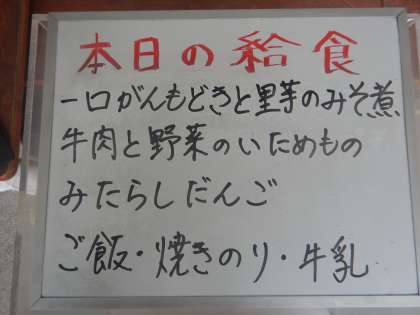 本日の給食
一口がんもどきと里芋のみそ煮
牛肉と野菜のいためもの
みたらしだんご
ご飯・焼きのり・牛乳